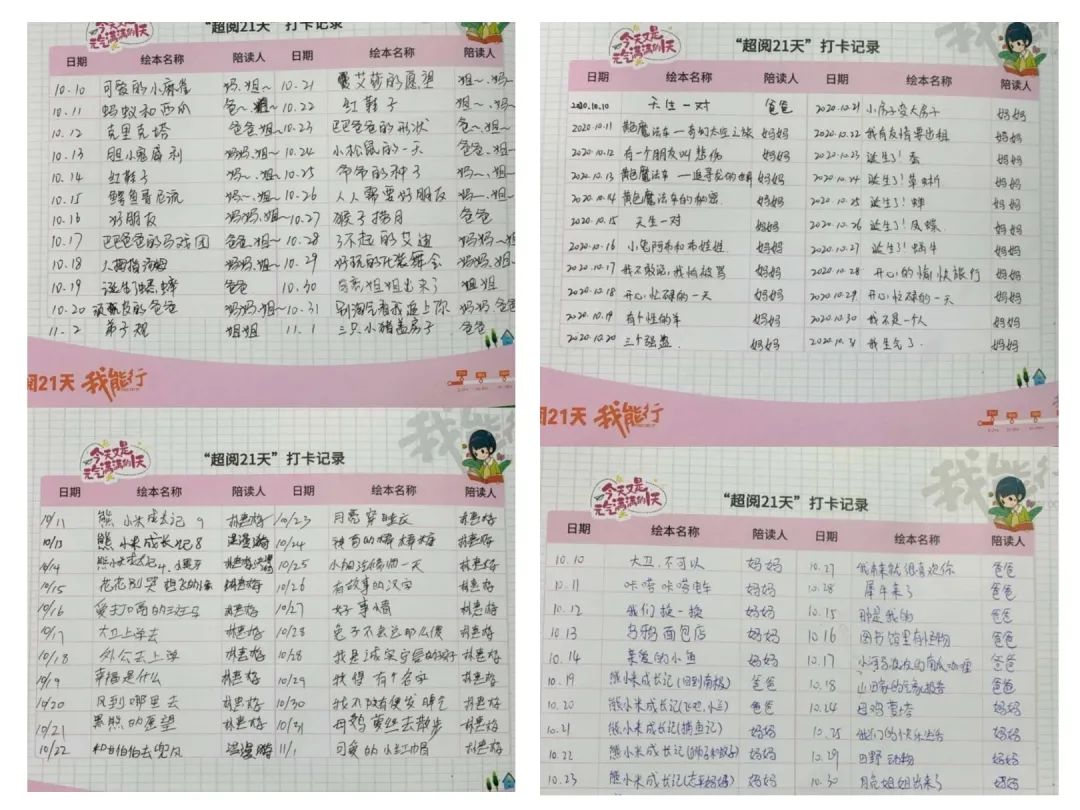 今天又是
元气满满的1天
“超阅21天”打卡记录
日期 绘本名称 陪读人 日期 绘本名称 陪读人
10.10 可爱的小麻雀 妈~姐~ 10.21 艾莎的愿望 姐~妈~
10.11 蚂蚁和西瓜 爸~ 10.22 红鞋子
10.12 克里克塔 爸爸.姐~ 10.23 巴巴爸爸的形状 爸~姐~
10.13 胆小鬼 妈妈.姐~ 10.24 小松鼠的一天 爸爸.姐~
10.14 红鞋子 妈~姐~ 10.25 爷爷的种子 妈~姐~
10.15 鳄鱼 妈~姐~ 10.26 人人需要好朋友 爸~姐~
10.16 好朋友 妈妈.姐~ 10.27 猴子捞月 爸爸
10.17 巴巴爸爸的马戏团 爸爸.姐~ 10.28 了不起的艾迪 妈妈~姐~
10.18 妈妈.姐~ 10.29 好玩的化装舞会 爸爸.姐~
10.19 爸爸.姐~ 10.30 月亮姐姐出来了 姐姐
10.20 的爸爸 妈妈.姐~ 10.31 别淘气看我追上你 妈妈.爸爸
11.2 弟子规 姐姐 11.1 三只小猪盖房子 爸爸
阅21天 我能行
今天又是
元气满满的1天
“超阅21天”打卡记录
日期 绘本名称 陪读人 日期 绘本名称 陪读人
2020.10.10 天生一对 爸爸 2020.10.21 小房子变大房子 妈妈
2020.10.11 黄色魔法车一奇幻太空之旅 妈妈 2020.10.22 我有友情要出租 妈妈
2020.10.12 有一个朋友叫悲伤 妈妈 2020.10.23 诞生了！蚕 妈妈
2020.10.13 黄色魔法车一追寻恐龙的世界 妈妈 2020.10.24 诞生了！草蜥 妈妈
2020.10.14 黄色魔法车的秘密 妈妈 2020.10.25 诞生了！蝉 妈妈
2020.10.15 天生一对 妈妈 2020.10.26 诞生了！凤蝶 妈妈
2020.10.16 小龟阿布和布娃娃 妈妈 2020.10.27 诞生了！蜗牛 妈妈
2020.10.17 我不敢说，我怕被骂 妈妈 2020.10.28 开心的愉快旅行 妈妈
2020.10.18 开心忙碌的一天 妈妈 2020.10.29 开心忙碌的一天 妈妈
2020.10.19 有个性的羊 妈妈 2020.10.30 我不是一个人 妈妈
2020.10.20 三个强盗 妈妈 2020.10.31 我生气了 妈妈
阅21天 我能行
我能
今天又是
元气满满的1天
“超阅21天”打卡记录
日期 绘本名称 陪读人 日期 绘本名称 陪读人
10/11 熊小米成长记9 10/23 月亮穿睡衣
10/13 熊小米成长记8 10/24
10/14 熊小米成长记4 10/25
10/15 花花别哭 10/26 有故事的汉字
10/16 10/27 好事情
10/17 大卫上学去 10/28 兔子不会远那么傻
10/18 外公去上学 10/28 我是诚实守信的孩子
10/19 幸福是什么 10/29 我得有个名字
10/20 风到哪里去 10/30 我不随便发脾气
10/21 的愿望 10/31 母鸡萝丝去散步
10/22 和怕怕去兜风 11/1 可爱的小红帽
我能
今天又是
元气满满的1天
“超阅21天”打卡记录
日期 绘本名称 陪读人 日期 绘本名称 陪读人
10.10 大卫，不可以 妈妈 10.27 我本来就很喜欢你 爸爸
10.11 咔嗒咔嗒电车 妈妈 10.28 犀牛来了 爸爸
10.12 我们换一换 妈妈 10.15 那是我的 爸爸
10.13 乌鸦面包店 妈妈 10.16 图书馆里有怪物 爸爸
10.14 亲爱的小鱼 妈妈 10.17 爸爸
10.19 熊小米成长记(旧到南极) 爸爸 10.18 山田家的气象报告 爸爸
10.20 熊小米成长记(飞吧，小兰) 爸爸 10.24 母鸡萝丝 妈妈
10.21 熊小米成长记(捕鱼记) 妈妈 10.25 他们的快乐生活 妈妈
10.22 熊小米成长记 妈妈 10.29 田野动物 妈妈
10.23 熊小米成长记 妈妈 10.30 月亮姐姐出来了 妈妈